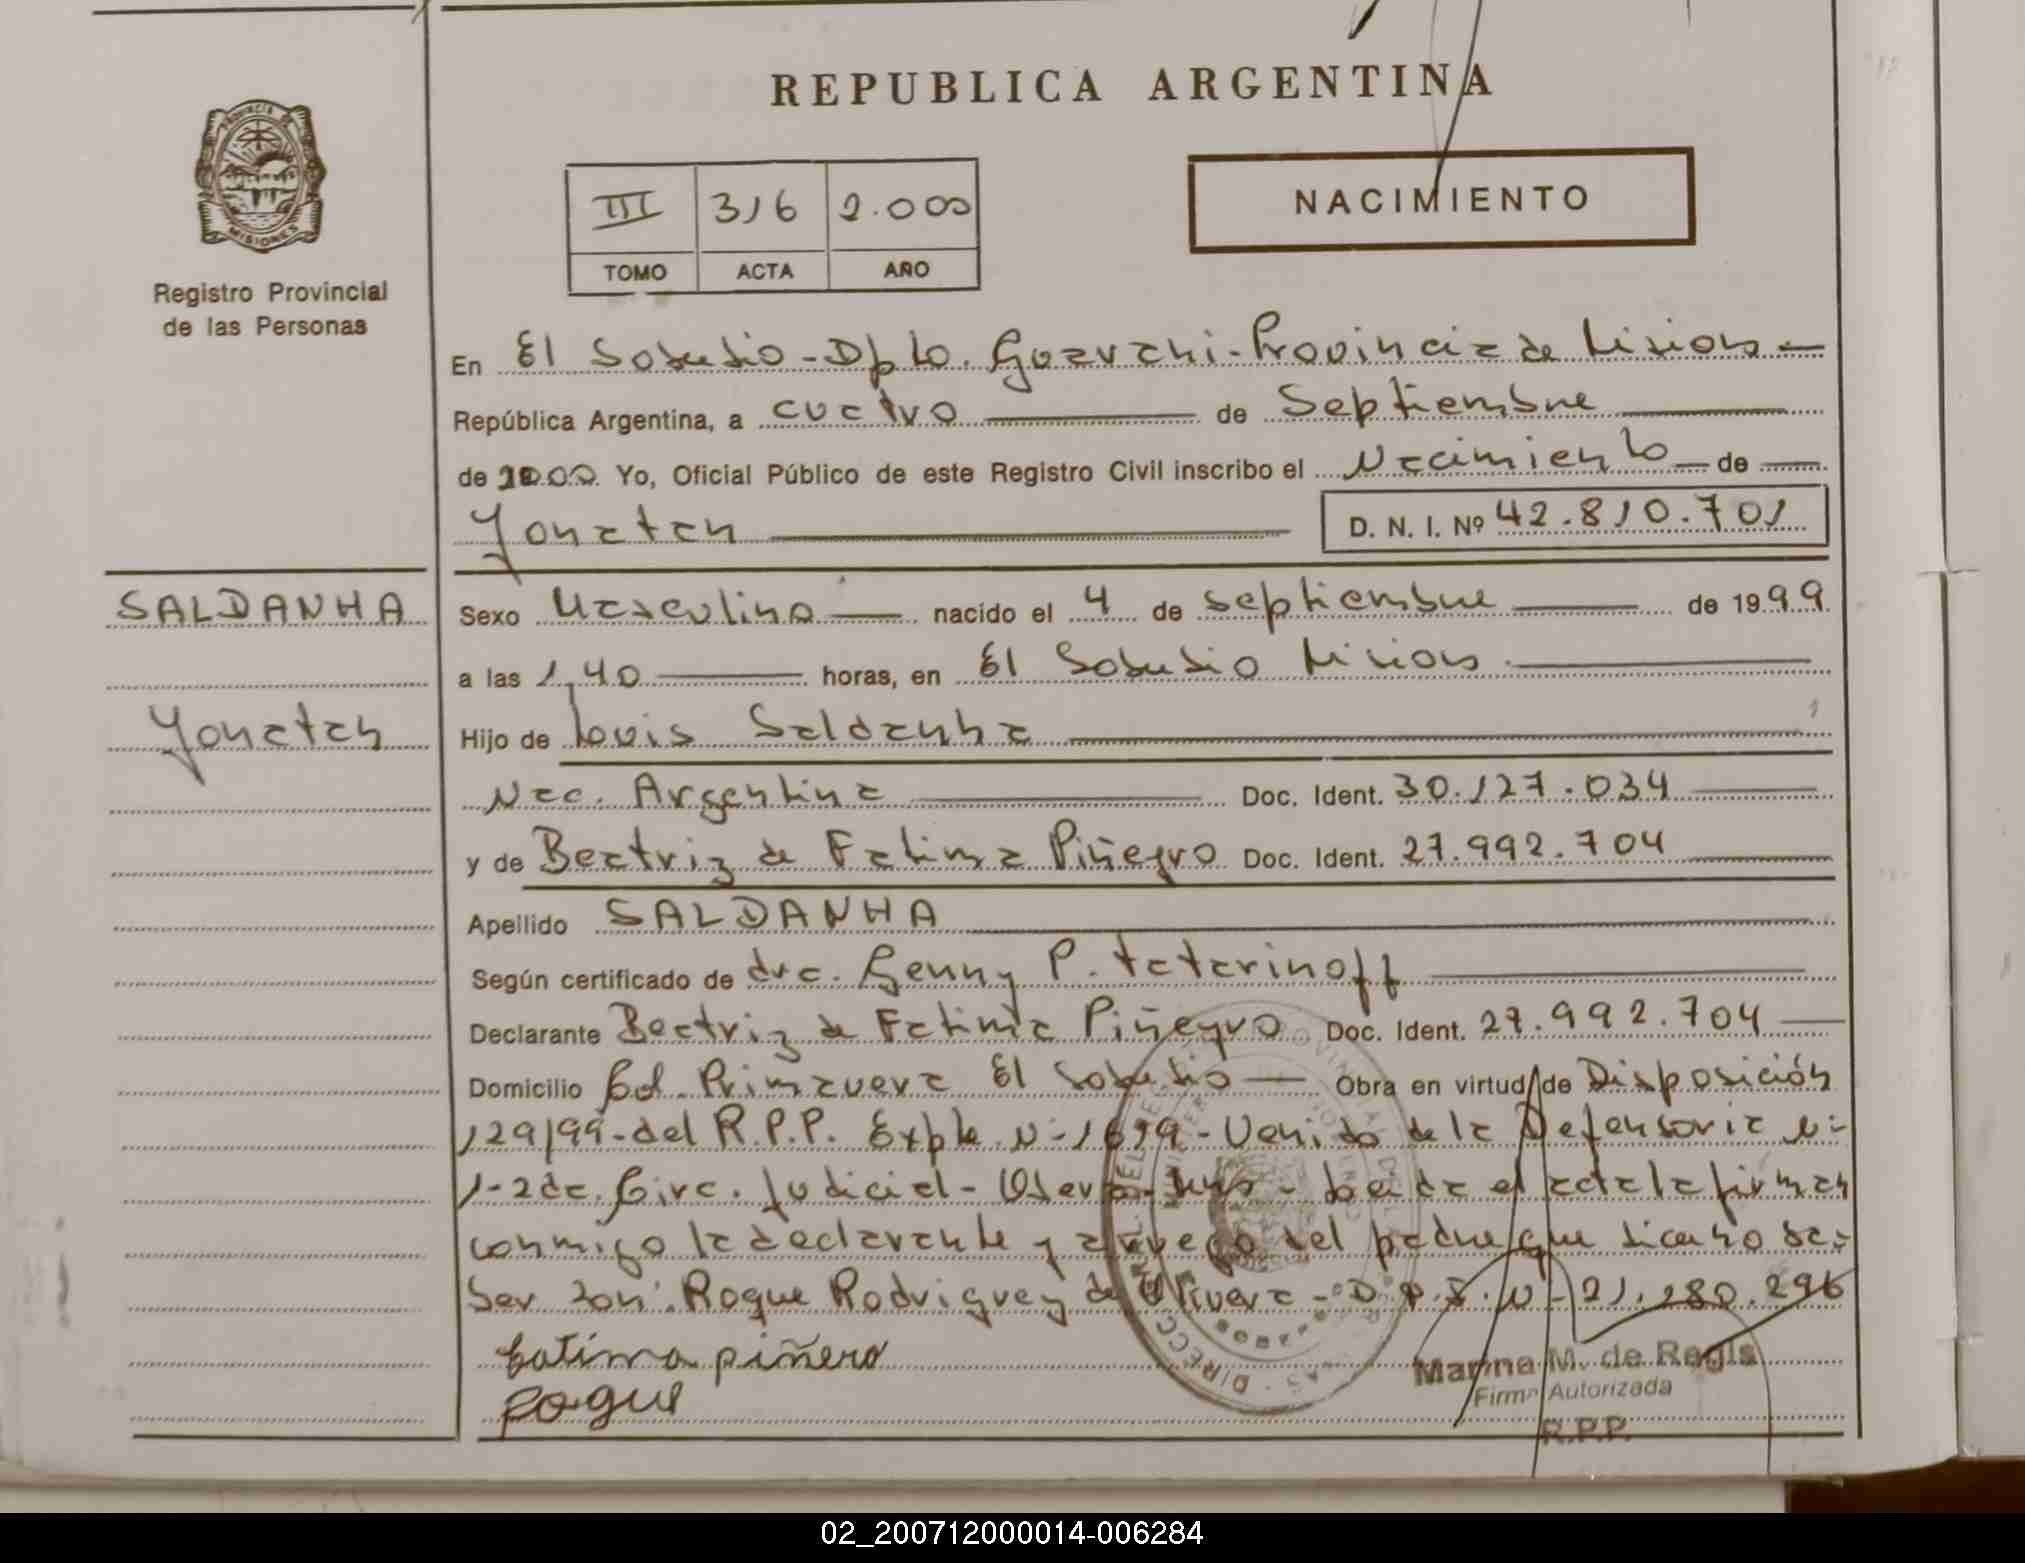 REPUBLICA ARGENTINA
PROVINCIA DE
MISIONES
Registro Provincial
de las Personas
III 316 2.000
TOMO ACTA AÑO
NACIMIENTO
En El Soberbio - Dpto. Guarani - Provincia de Misiones -
República Argentina, a cuatro de Septiembre
de 2000 Yo, Oficial Público de este Registro Civil inscribo el Nacimiento de
Yonatan D. N. I. Nº 42.810.701
SALDANHA
Yonatan
Sexo Masculino nacido el 4 de septiembre de 1999
a las 1,40 horas, en El Soberbio Misiones
Hijo de Louis Saldanha
Nac. Argentina Doc. Ident. 30.127.034
y de Beatriz de Fatima Piñeyro Doc. Ident. 27.992.704
Apellido SALDANHA
Según certificado de dra. Genny P. Tatarinoff
Declarante Beatriz de Fatima Piñeyro Doc. Ident. 27.992.704
Domicilio Col. Primavera El Soberbio Obra en virtud de Disposición
129/99 - del R.P.P. Expte N- 1699 - Venido de la Defensoria N-
1 - 2da. Circ. Judicial - Obera - Mnes - Leida el acta la firman
conmigo la declarante y a ruego del padre que dice no sa-
ber Don: Roque Rodriguez de Olivera - D.N.I. N- 21.280.296
fatima piñero
Roque
Marina M. de Regis
Firma Autorizada
R.P.P.
02_200712000014-006284